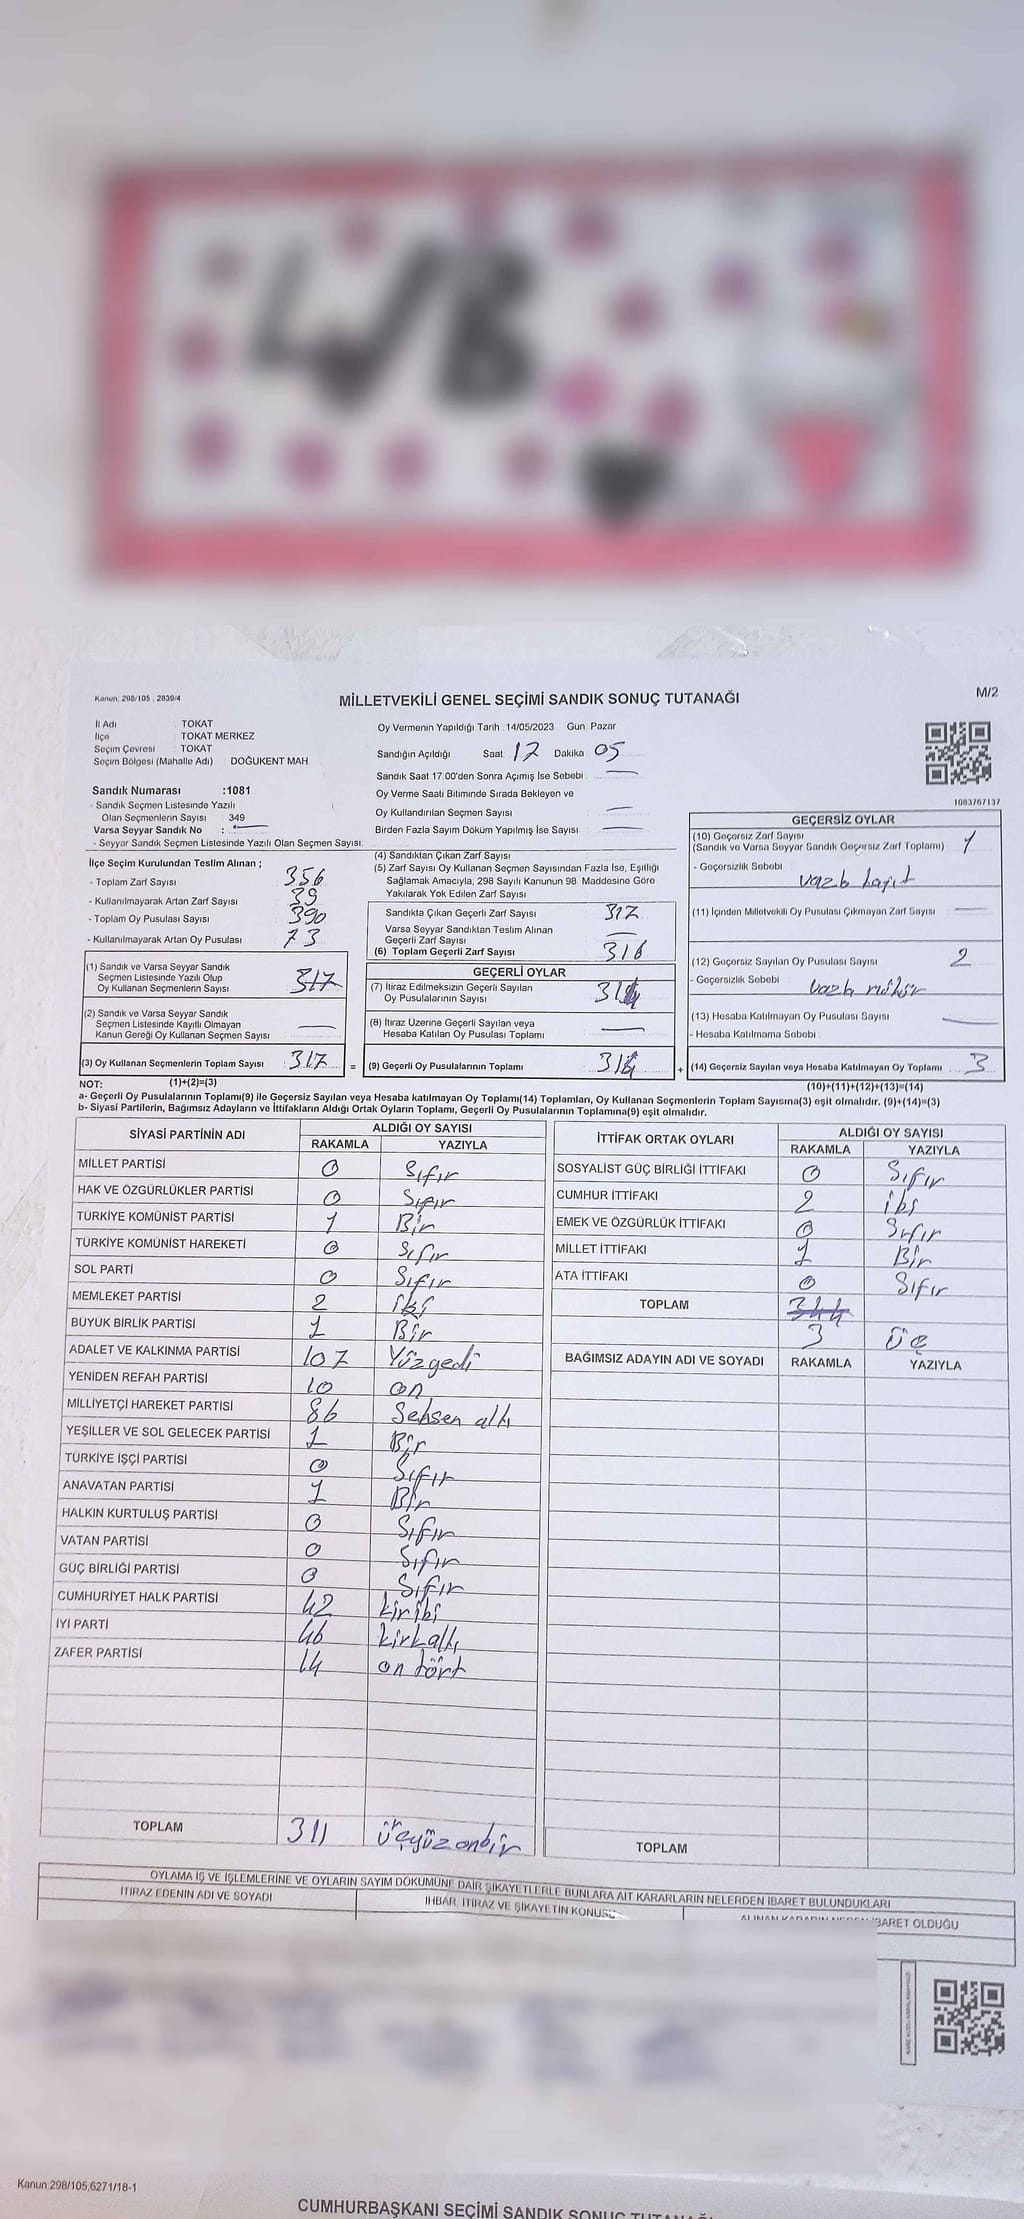 L/B
Kanun: 298/105 , 2839/4
MİLLETVEKİLİ GENEL SEÇİMİ SANDIK SONUÇ TUTANAĞI
M/2
İl Adı TOKAT
İlçe TOKAT MERKEZ
Seçim Çevresi : TOKAT
Seçim Bölgesi (Mahalle Adı) : DOĞUKENT MAH
Sandık Numarası :1081
- Sandık Seçmen Listesinde Yazılı
Olan Seçmenlerin Sayısı 349
Varsa Seyyar Sandık No : —
- Seyyar Sandık Seçmen Listesinde Yazılı Olan Seçmen Sayısı
İlçe Seçim Kurulundan Teslim Alınan ;
- Toplam Zarf Sayısı 356
- Kullanılmayarak Artan Zarf Sayısı 39
- Toplam Oy Pusulası Sayısı 390
- Kullanılmayarak Artan Oy Pusulası 73
(1) Sandık ve Varsa Seyyar Sandık
Seçmen Listesinde Yazılı Olup
Oy Kullanan Seçmenlerin Sayısı 317
(2) Sandık ve Varsa Seyyar Sandık
Seçmen Listesinde Kayıtlı Olmayan
Kanun Gereği Oy Kullanan Seçmen Sayısı —
(3) Oy Kullanan Seçmenlerin Toplam Sayısı 317
(1)+(2)=(3)
Oy Vermenin Yapıldığı Tarih : 14/05/2023 Gün: Pazar
Sandığın Açıldığı Saat 17 Dakika 05
Sandık Saat 17:00'den Sonra Açımış İse Sebebi —
Oy Verme Saati Bitiminde Sırada Bekleyen ve
Oy Kullandırılan Seçmen Sayısı —
Birden Fazla Sayım Döküm Yapılmış İse Sayısı —
(4) Sandıktan Çıkan Zarf Sayısı
(5) Zarf Sayısı Oy Kullanan Seçmen Sayısından Fazla İse, Eşitliği
Sağlamak Amacıyla, 298 Sayılı Kanunun 98. Maddesine Göre
Yakılarak Yok Edilen Zarf Sayısı
Sandıkta Çıkan Geçerli Zarf Sayısı 317
Varsa Seyyar Sandıktan Teslim Alınan
Geçerli Zarf Sayısı —
(6) Toplam Geçerli Zarf Sayısı 316
GEÇERLİ OYLAR
(7) İtiraz Edilmeksizin Geçerli Sayılan
Oy Pusulalarının Sayısı 314
(8) İtiraz Üzerine Geçerli Sayılan veya
Hesaba Katılan Oy Pusulası Toplamı —
= (9) Geçerli Oy Pusulalarının Toplamı 314
1083767137
GEÇERSİZ OYLAR
(10) Geçersiz Zarf Sayısı
(Sandık ve Varsa Seyyar Sandık Geçersiz Zarf Toplamı) 1
- Geçersizlik Sebebi
(11) İçinden Milletvekili Oy Pusulası Çıkmayan Zarf Sayısı —
(12) Geçersiz Sayılan Oy Pusulası Sayısı 2
- Geçersizlik Sebebi
(13) Hesaba Katılmayan Oy Pusulası Sayısı —
- Hesaba Katılmama Sebebi
+ (14) Geçersiz Sayılan veya Hesaba Katılmayan Oy Toplamı 3
(10)+(11)+(12)+(13)=(14)
NOT:
a- Geçerli Oy Pusulalarının Toplamı(9) ile Geçersiz Sayılan veya Hesaba katılmayan Oy Toplamı(14) Toplamları, Oy Kullanan Seçmenlerin Toplam Sayısına(3) eşit olmalıdır. (9)+(14)=(3)
b- Siyasi Partilerin, Bağımsız Adayların ve İttifakların Aldığı Ortak Oyların Toplamı, Geçerli Oy Pusulalarının Toplamına(9) eşit olmalıdır.
SİYASİ PARTİNİN ADI ALDIĞI OY SAYISI
RAKAMLA YAZIYLA
MİLLET PARTİSİ 0 Sıfır
HAK VE ÖZGÜRLÜKLER PARTİSİ 0 Sıfır
TÜRKİYE KOMÜNİST PARTİSİ 1 Bir
TÜRKİYE KOMÜNİST HAREKETİ 0 Sıfır
SOL PARTİ 0 Sıfır
MEMLEKET PARTİSİ 2 iki
BÜYÜK BİRLİK PARTİSİ 1 Bir
ADALET VE KALKINMA PARTİSİ 107 Yüzyedi
YENİDEN REFAH PARTİSİ 10 on
MİLLİYETÇİ HAREKET PARTİSİ 86 Seksen altı
YEŞİLLER VE SOL GELECEK PARTİSİ 1 Bir
TÜRKİYE İŞÇİ PARTİSİ 0 Sıfır
ANAVATAN PARTİSİ 1 Bir
HALKIN KURTULUŞ PARTİSİ 0 Sıfır
VATAN PARTİSİ 0 Sıfır
GÜÇ BİRLİĞİ PARTİSİ 0 Sıfır
CUMHURİYET HALK PARTİSİ 42 kiriki
İYİ PARTİ 46 kirkaltı
ZAFER PARTİSİ 14 on dört
TOPLAM 311 üçyüzonbir
İTTİFAK ORTAK OYLARI ALDIĞI OY SAYISI
RAKAMLA YAZIYLA
SOSYALİST GÜÇ BİRLİĞİ İTTİFAKI 0 Sıfır
CUMHUR İTTİFAKI 2 iki
EMEK VE ÖZGÜRLÜK İTTİFAKI 0 Sıfır
MİLLET İTTİFAKI 1 Bir
ATA İTTİFAKI 0 Sıfır
TOPLAM 344
3 üç
BAĞIMSIZ ADAYIN ADI VE SOYADI RAKAMLA YAZIYLA
TOPLAM
OYLAMA İŞ VE İŞLEMLERİNE VE OYLARIN SAYIM DÖKÜMÜNE DAİR ŞİKAYETLERLE BUNLARA AİT KARARLARIN NELERDEN İBARET BULUNDUKLARI
İTİRAZ EDENİN ADI VE SOYADI İHBAR, İTİRAZ VE ŞİKAYETİN KONUSU ALINAN KARARIN NEDEN İBARET OLDUĞU
Kanun:298/105,6271/18-1
CUMHURBAŞKANI SEÇİMİ SANDIK SONUÇ TUTANAĞI